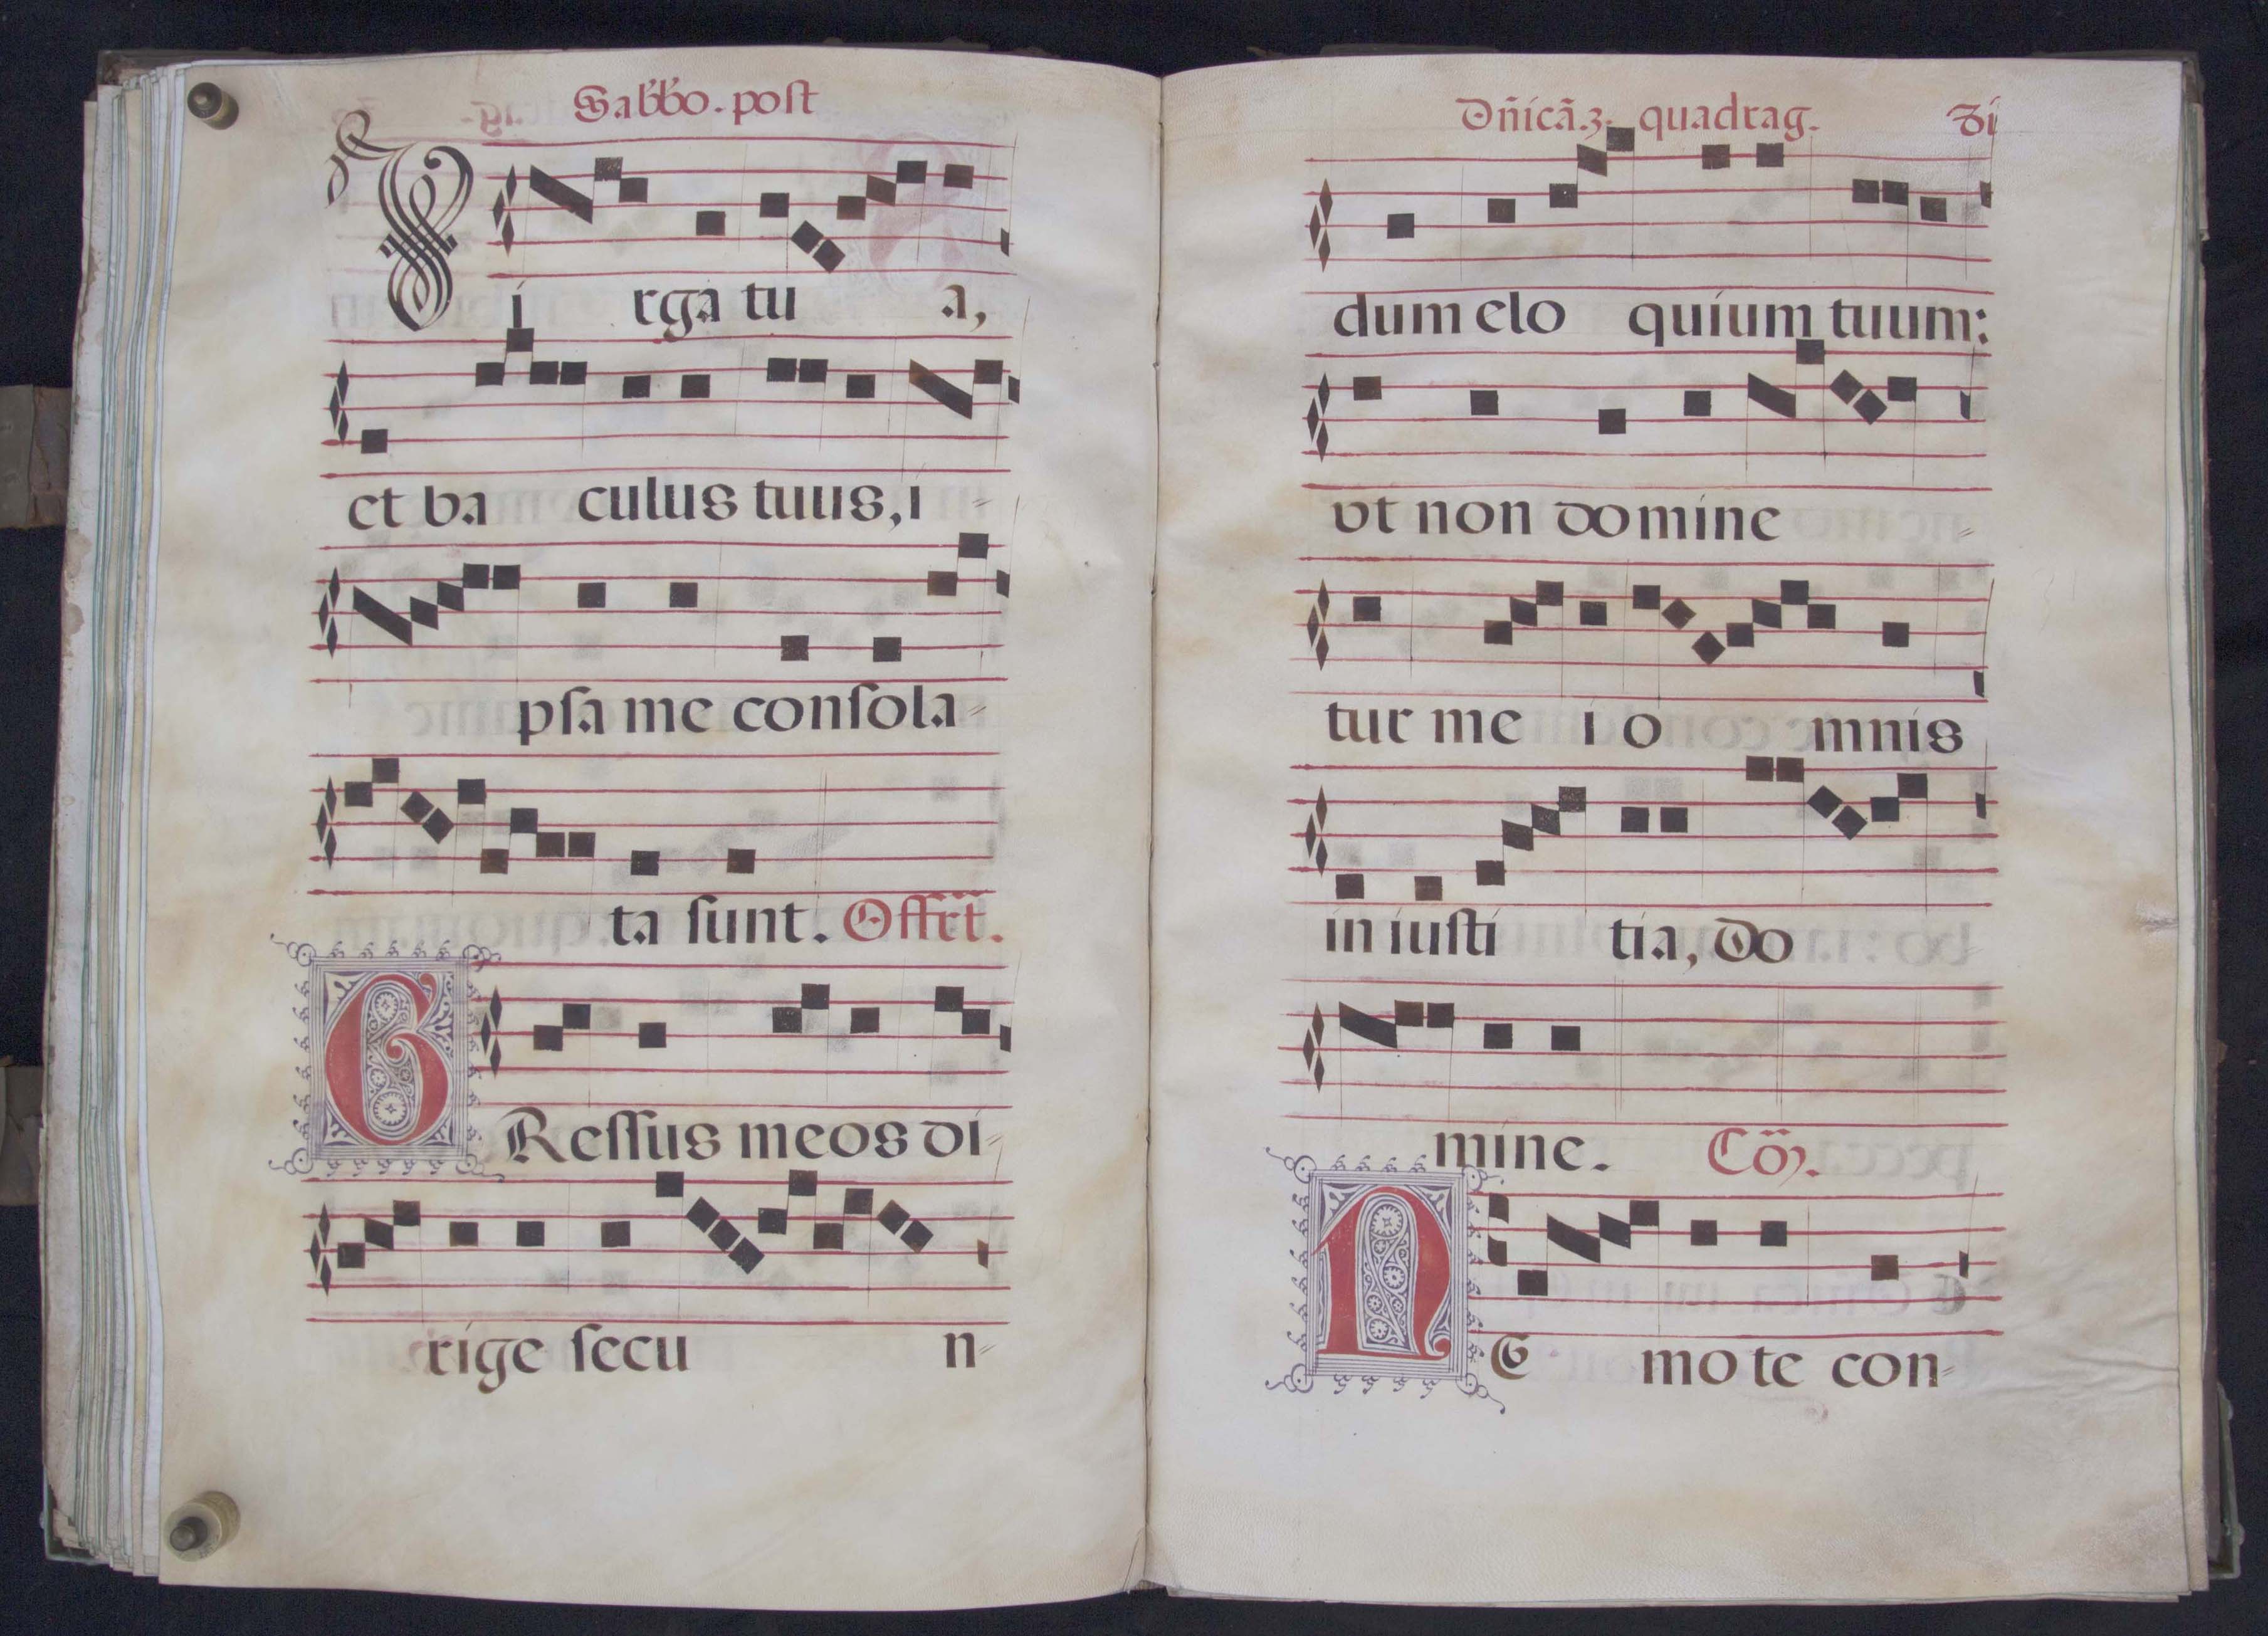 Sabbo. post
Vi rga tu a,
et ba culus tuus, i-
psa me consola-
ta sunt. Offrt.
GRessus meos di-
rige secu n-
Dñicã.3. quadrag.
dum elo quium tuum:
vt non domine
tur me i o mnis
in iusti tia, do
mine. Cõ.
NE mo te con-